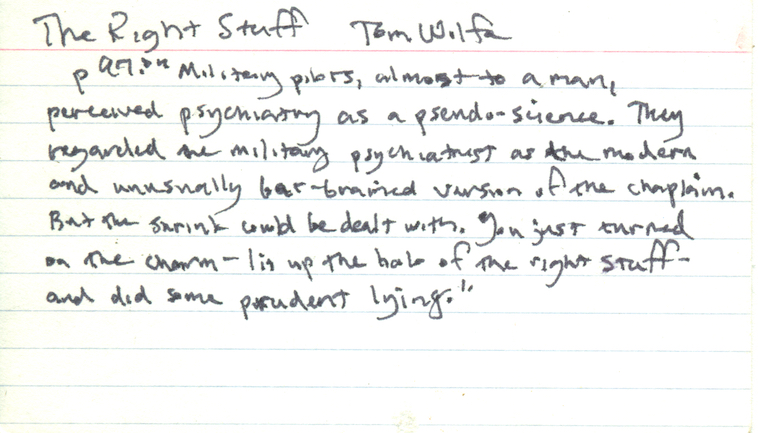 The Right Stuff Tom Wolfe
p 97: "Military pilots, almost to a man,
perceived psychiatry as a pseudo-science. They
regarded the military psychiatrist as the modern
and unusually bat-brained version of the chaplain.
But the shrink could be dealt with. You just turned
on the charm - lit up the halo of the right stuff -
and did some prudent lying."